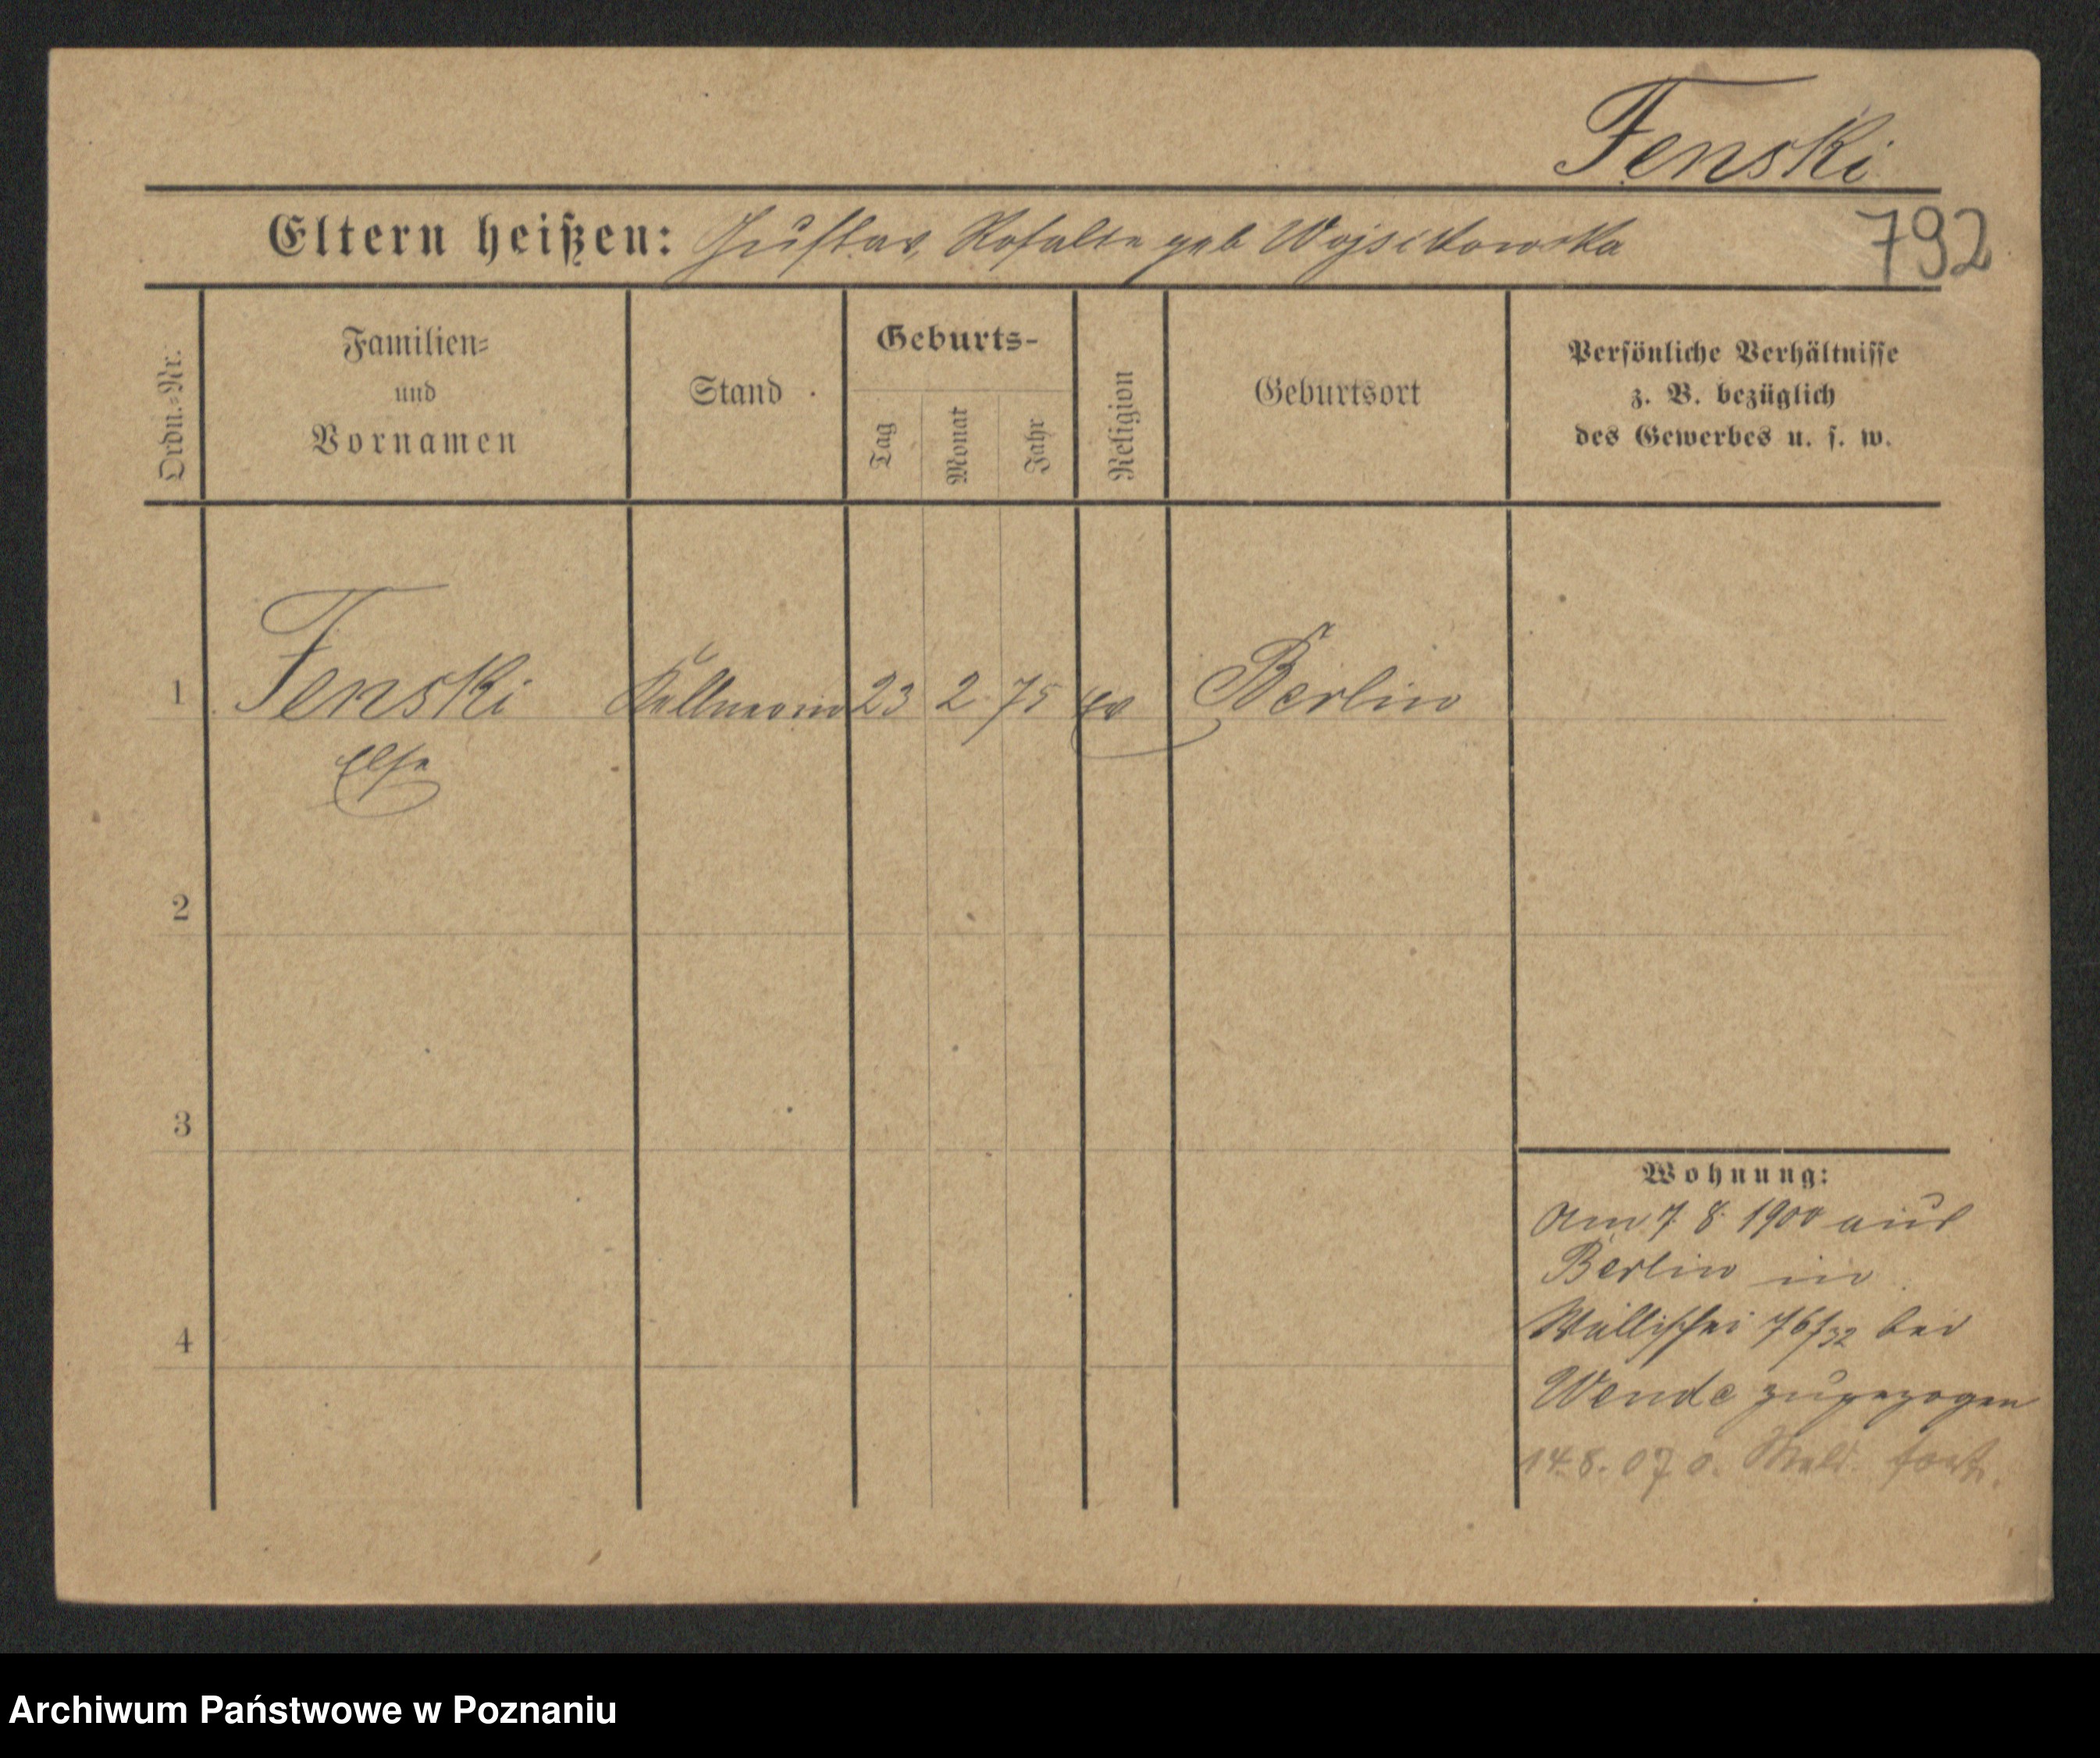 Fenski
Eltern heißen: Gustav, Rosalie geb Wojscikowska
792
Ordn.=Nr.
Familien=
und
Vornamen
Stand
Geburts-
Tag
Monat
Jahr
Religion
Geburtsort
Persönliche Verhältnisse
z. B. bezüglich
des Gewerbes u. s. w.
1 Fenski Kellnerin 23 2 75 ev Berlin
Else
2
3
4
Wohnung:
Am 7. 8. 1900 aus
Berlin in
Wallischei 76/32 bei
Wende zugezogen
14.8.07 o. Meld. fort.
Archiwum Państwowe w Poznaniu